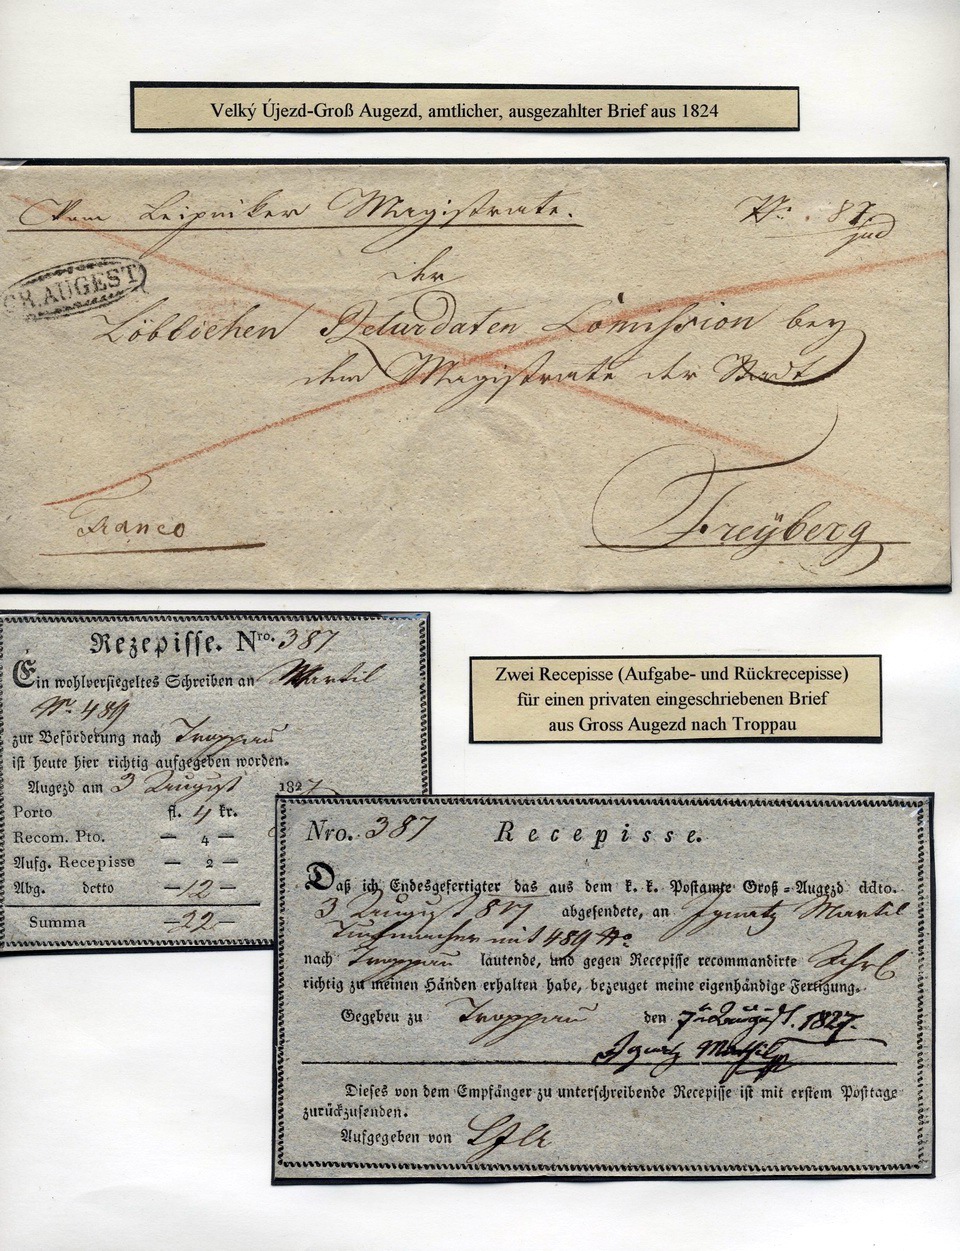 Velký Újezd-Groß Augezd, amtlicher, ausgezahlter Brief aus 1824
Vom Leipniker Magistrate.
Nr. 87
jud
GR. AUGEST
der
Löblichen Deturdaten Comission bey
dem Magistrate der Stadt
Franco
Freÿberg
Rezepisse. Nro. 387
Ein wohlversiegeltes Schreiben an Martil
Nr. 489
zur Beförderung nach Troppau
ist heute hier richtig aufgegeben worden.
Augezd am 3 August 1827
Porto fl. 4 kr.
Recom. Pto. — 4 —
Aufg. Recepisse — 2 —
Abg. detto — 12 —
Summa — 22 —
Zwei Recepisse (Aufgabe- und Rückrecepisse)
für einen privaten eingeschriebenen Brief
aus Gross Augezd nach Troppau
Nro. 387 Recepisse.
Daß ich Endesgefertigter das aus dem k. k. Postamte Groß-Augezd ddto.
3 August 827 abgesendete, an Ignatz Martil
Tuchmacher mit 489 Nro
nach Troppau lautende, und gegen Recepisse recommandirte
richtig zu meinen Händen erhalten habe, bezeuget meine eigenhändige Fertigung.
Gegebeu zu Troppau den August. 1827.
Ignatz Martil
Dieses von dem Empfänger zu unterschreibende Recepisse ist mit erstem Posttage
zurückzusenden.
Aufgegeben von